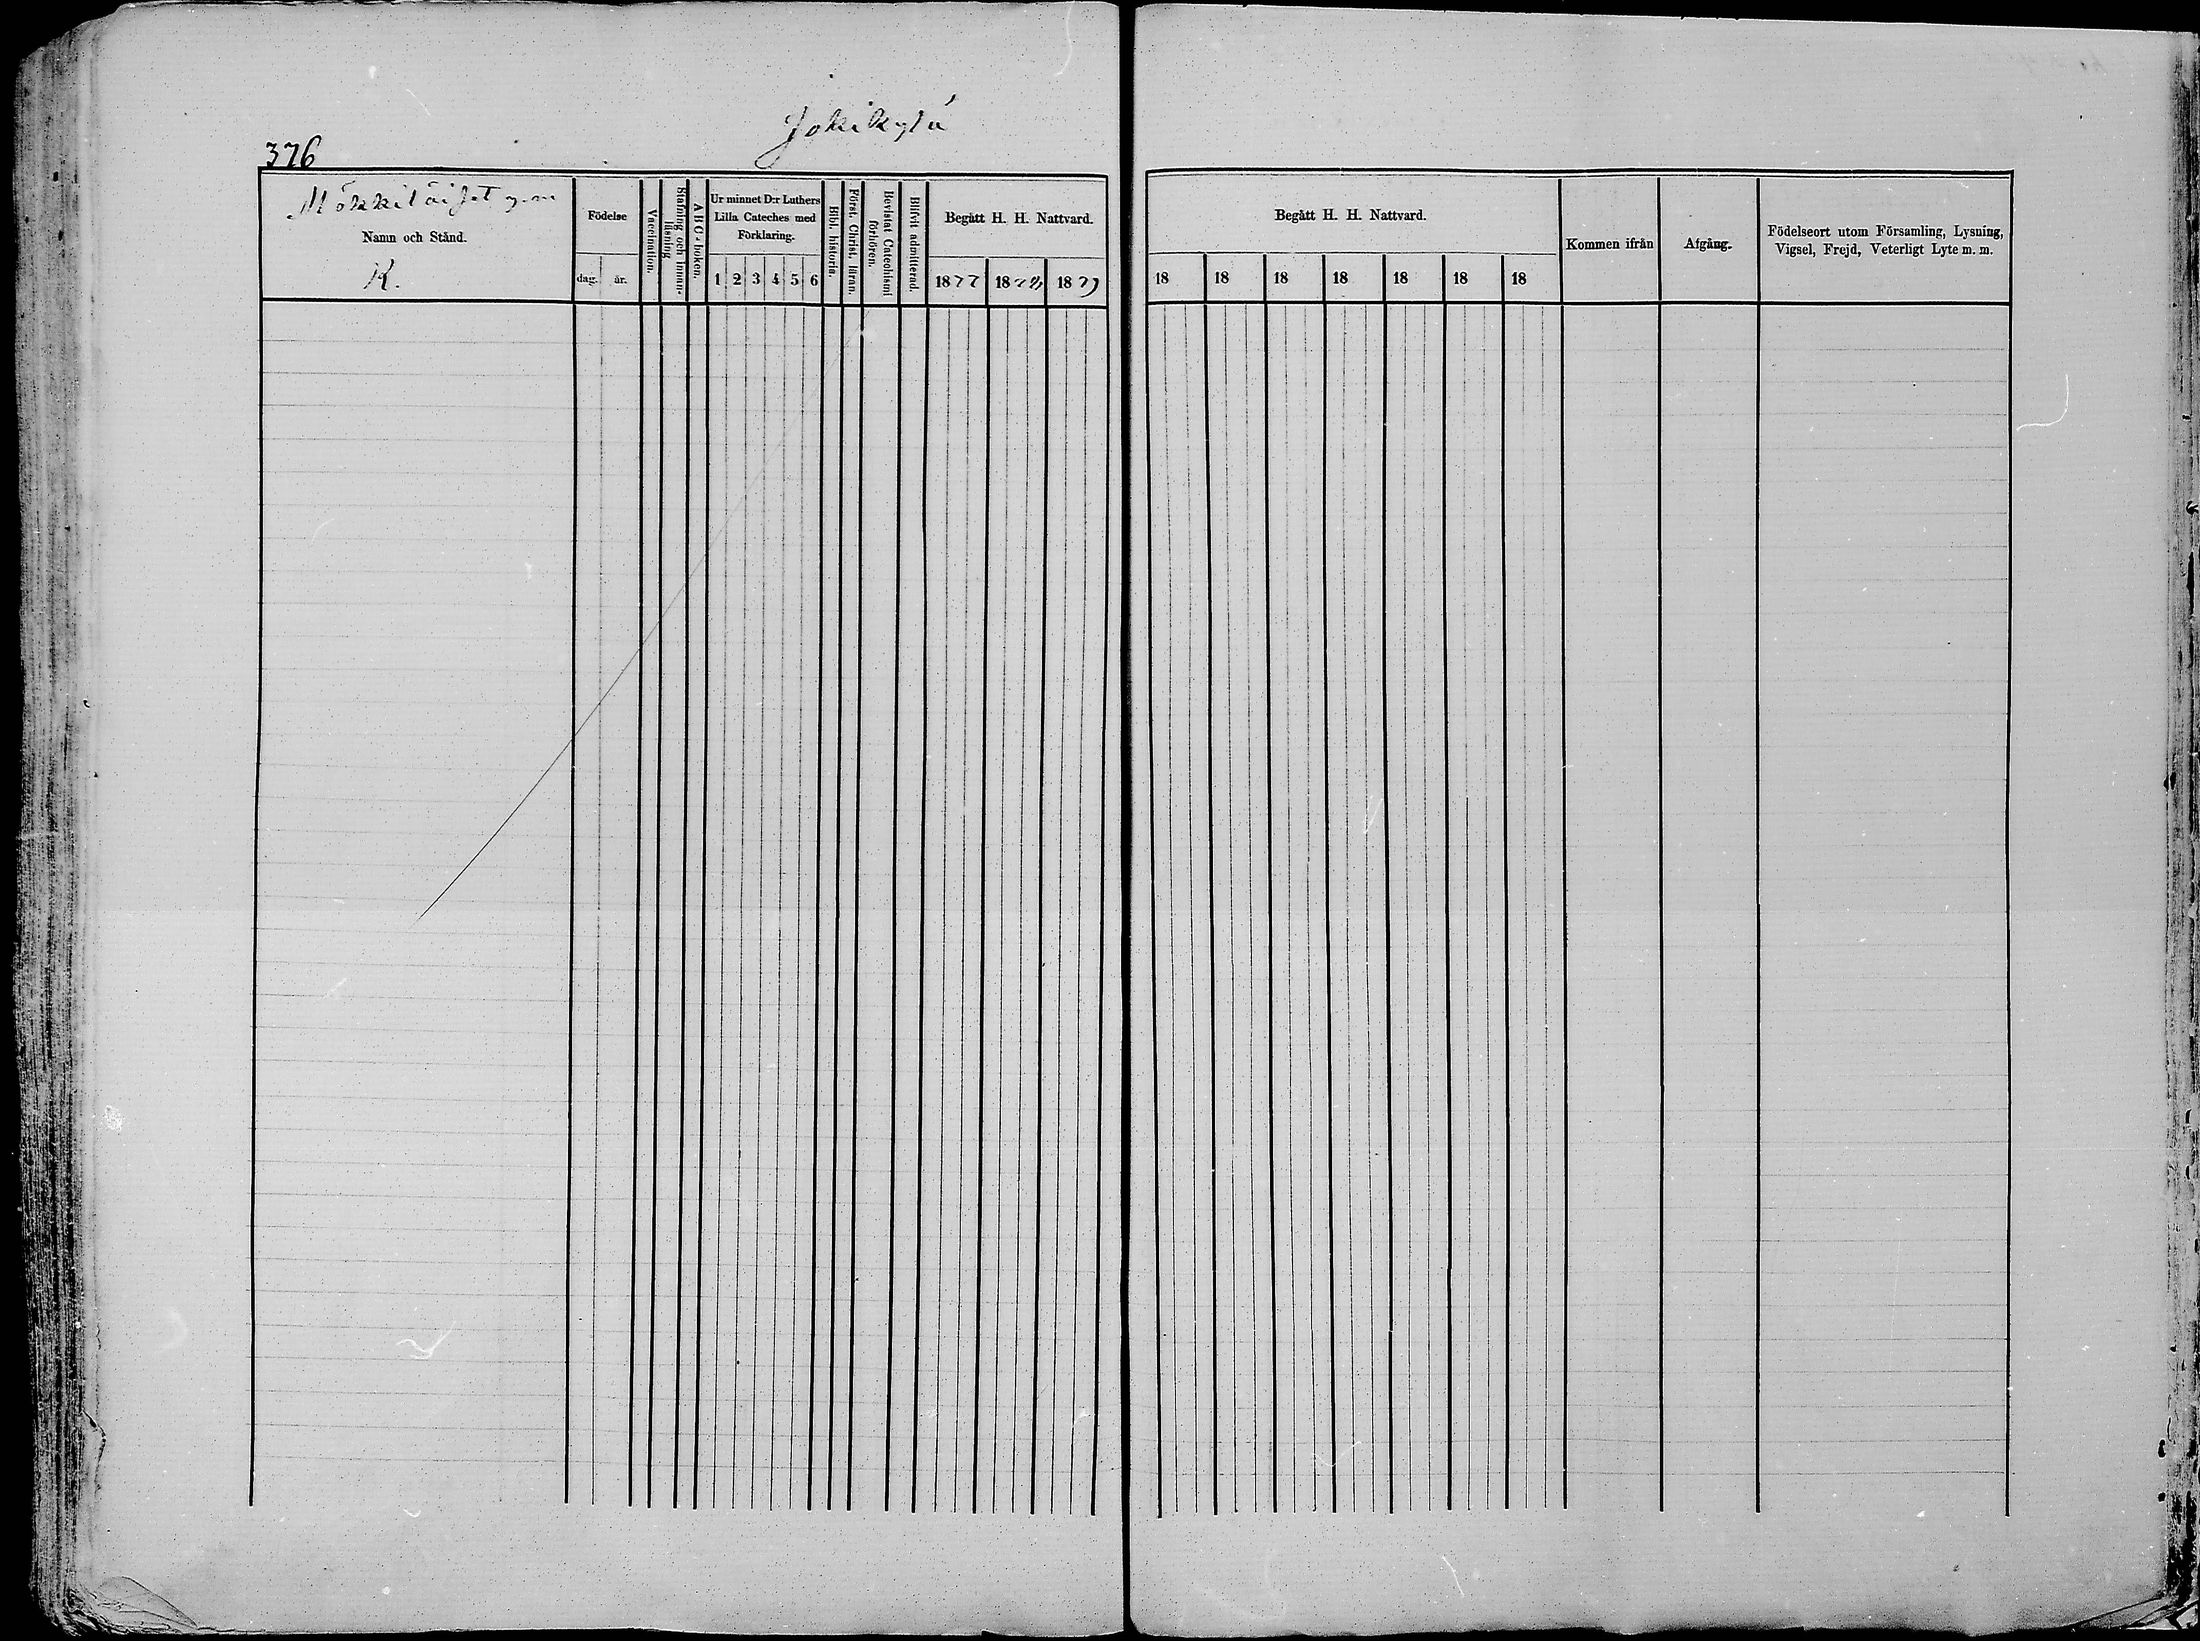 Jokikylä
376
Mökkiläiset y.m.
Namn och Stånd.
K.
Födelse
dag. år.
Vaccination.
Stafning och Innan-
läsning
A B C-boken.
Ur minnet D:r Luthers
Lilla Cateches med
Förklaring.
1 2 3 4 5 6
Bibl. historia.
Först. Christ. läran.
Bevistat Catechismi
förhören.
Blifvit admitterad.
Begått H. H. Nattvard.
1877 1878 1879
Begått H. H. Nattvard.
18 18 18 18 18 18 18
Kommen ifrån
Afgång.
Födelseort utom Församling, Lysning,
Vigsel, Frejd, Veterligt Lyte m. m.